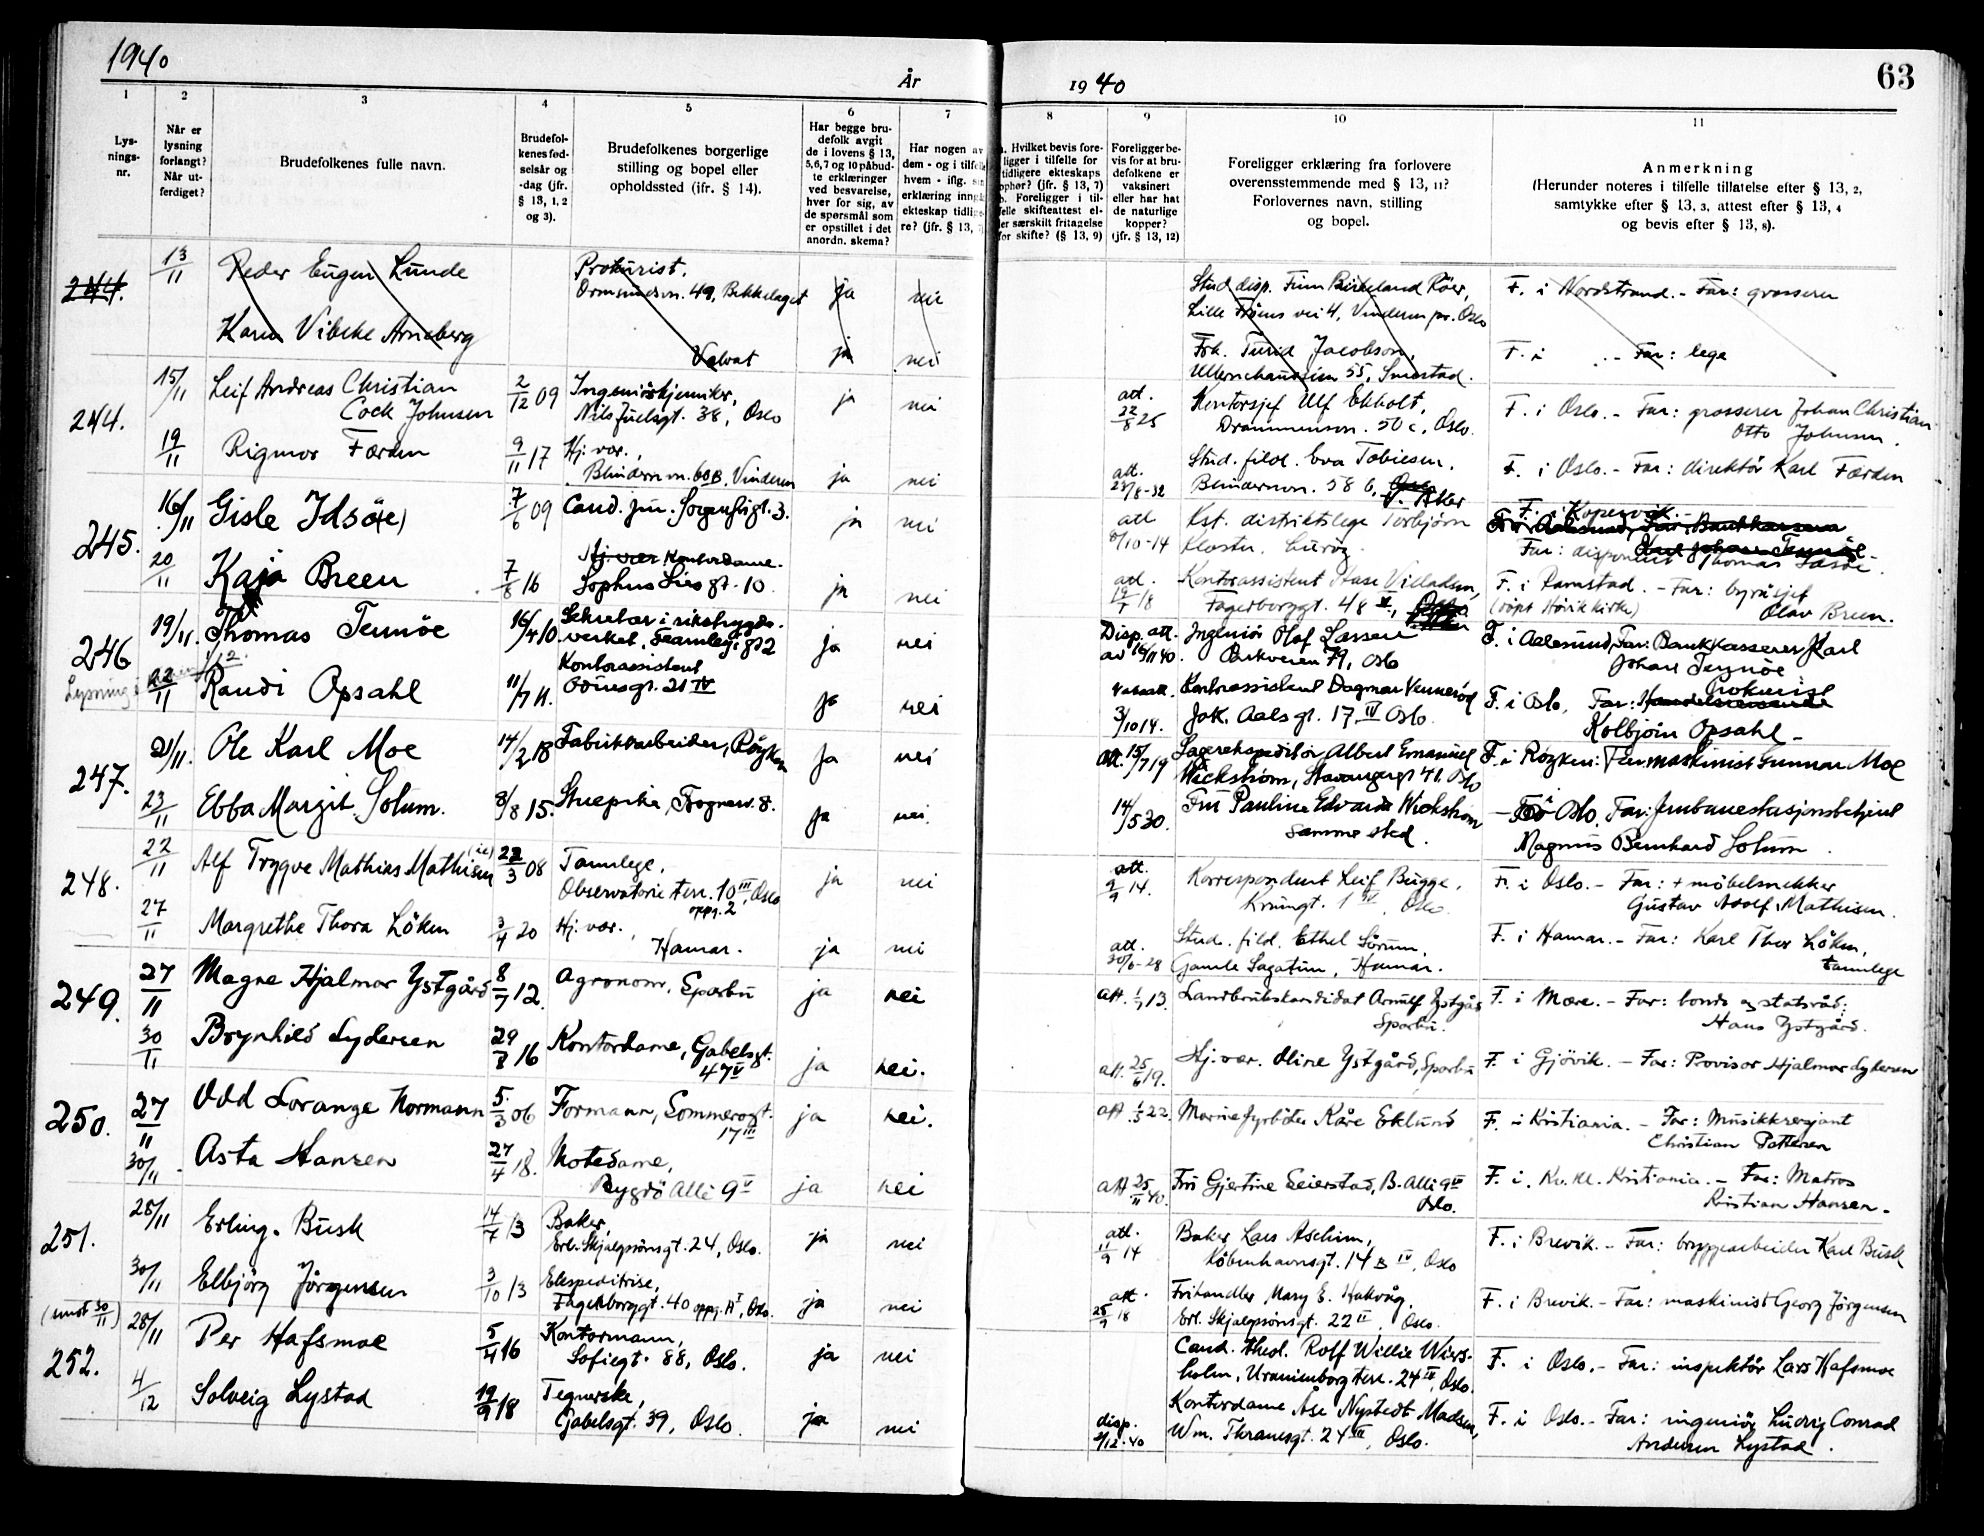 1940
År
1940
63
1 2 3 4 5 6 7 8 9 10 11
Lys-
nings-
nr.
Når er
lysning
forlangt?
Når ut-
ferdiget?
Brudefolkenes fulle navn.
Brudefol-
kenes fød-
selsår og
-dag (jfr.
§ 13, 1, 2
og 3).
Brudefolkenes borgerlige
stilling og bopel eller
opholdssted (ifr. § 14).
Har begge bru-
defolk avgit
de i lovens § 13,
5,6,7 og 10 påbud-
te erklæringer
ved besvarelse,
hver for sig, av
de spørsmål som
er opstillet i det
anordn. skema?
Har nogen av
dem - og i tilfelle
hvem - iflg.
erklæring inng
ekteskap tidlige-
re? (jfr. § 13,
Hvilket bevis fore-
ligger i tilfelle for
tidligere ekteskaps
ophør? (jfr. § 13, 7)
b. Foreligger i til-
felle skifteattest el-
ler særskilt fritagelse
for skifte? (§ 13, 9)
Foreligger be-
vis for at bru-
defolkene er
vaksinert
eller har hat
de naturlige
kopper?
(jfr. § 13, 12)
Foreligger erklæring fra forlovere
overensstemmende med § 13, 11?
Forlovernes navn, stilling
og bopel.
Anmerkning
(Herunder noteres i tilfelle tillatelse efter § 13, 2,
samtykke efter § 13, 3, attest efter § 13, 4
og bevis efter § 13, 8).
244. 13/11 Peder Eugen Lunde Prokurist, ja nei Stud. disp. Finn Birkeland Röer, F. i Nordstrand. - Far: grosserer
Ormsundsvn. 49, Bekkelaget Lille Frøens vei 4, Vinderen pr. Oslo
Karen Vibeke Arneberg Volvat ja nei Frk. Turid Jacobson, F. i - Far: lege
Ullernchausséen 55, Smestad.
244. 15/11 Leif Andreas Christian 2/12 09 Ingeniörkjemiker, ja nei att. 22/8 25 Kontorsjef Ulf Ekholt, F. i Oslo. - Far: grosserer Johan Christian
Cock Johnsen Nils Juelsgt. 38, Oslo Drammensvn. 50 c, Oslo. Otto Johnsen.
19/11 Rigmor Færden 9/11 17 Hj. vær., ja nei att. 23/8-32 Stud. filol. Eva Tobiesen, F. i Oslo. - Far: direktör Karl Færden
Blindern vn. 60B, Vinderen Blindernvn. 58 b, V. Aker
245. 16/11 Gisle Idsö(e) 7/6 09 Cand. jur. Sorgenfrigt. 3. ja nei att 8/10-14 Kst. distriktslege Torbjørn F. i Kopervik. -
Kloster, Luröy. Far: disponent Thomas Idsöe.
20/11 Kaja Breen 7/8 16 Hj. vær Kontordame. ja nei att. 19/ 18 Kontorassistent Aase Villadsen, F. i Ramstad. - Far: byråsjef
Sophus Lies gt. 10 Fagerborggt. 48 (döpt Hövik kirke) Olav Breen.
246 19/11. Thomas Tennöe 16/4 10. Sekretær i rikstrygde- ja nei Disp. att. av 16/11 40. Ingeniör Olof Lassen F. i Aalesund, Far: Bankkasserer Karl
verket, Teatergt 2 Birkveien 79, Oslo Johan Tennöe
22/11 Randi Opsahl 11/7 11. Kontorassistent ja nei 3/10 14. Kontorassistent Dagmar Venneröd F. i Oslo, Far: Handelsreisende Prokurist
Odinsgt. 21 IV Jak. Aals gt. 17 IV Oslo. Kolbjörn Opsahl -
247. 21/11. Ole Karl Moe 14/2 18 Fabrikkarbeider, Röyken ja nei att. 15/7 19 Lagerekspeditör Albert Emanuel F. i Röyken: Far maskinist Gunnar Moe
Wickström, Stavangergt 41. Oslo
23/11 Ebba Margit Solum. 8/8 15. Stuepike, Frognerv. 8. ja nei. 14/5 30. Fru Pauline Edvarda Wickström - F. i Oslo, Far: Jernbanestasjonsbetjent
samme sted Magnus Bernhard Solum.
248. 22/11 Alf Trygve Mathias Mathisen 22/3 08 Tannlege, ja nei att. 9/9 14. Korrespondent Leif Bugge, F. i Oslo. - Far: + möbelsnekker
Observatorie terr. 10 III, Oslo Krumgt. 1 IV, Oslo. Gustav Adolf Mathisen.
oppg. 2
27/11 Margrethe Thora Löken 3/4 20 Hj. vær., ja nei att. 30/6-28 Stud. filol. Ethel Sörum, F. i Hamar. - Far: Karl Thor Löken,
Hamar. Gamle Sagatun, Hamar. tannlege
249. 27/11 Magne Hjalmar Ystgård 8/7 12. Agronom, Sparbu ja nei att. 1/7 13. Landbrukskandidat Arnulf Ystgård F. i Mære. - Far: bonde og statsråd:
Sparbu. Hans Ystgård.
30/11 Brynhild Lydersen 29/8 16 Kontordame, Gabelsgt. ja nei. att. 25/6 19. Hj. vær. Oline Ystgård, Sparbu F. i Gjövik. - Far: Provisor Hjalmar Lydersen
47 V
250. 27/11 Odd Lorange Normann 5/3 06 Formann, Sommerogt. ja nei. att 1/3 22. Marinefyrböter Kåre Eklund F. i Kristiania. - Far: Musikksersjant
17 III Christian Pettersen
30/11 Asta Hansen 27/4 18. Motedame, ja nei att 25/11 40. Fru Gjertine Seierstad, B. Allé 9 V F. i. Kv. kl. Kristiania. - Far: Matros
Bygdö Allé 9 V Oslo. Kristian Hansen.
251. 28/11 Erling Busk 14/7 13 Baker, ja nei att. 11/9 14 Baker Lars Aschim, F. i Brevik. - Far: bryggearbeider Karl Busk
Erl. Skjalgssönsgt. 24, Oslo. Köbenhavnsgt. 14 B IV, Oslo
30/11 Elbjörg Jörgensen 3/10 13 Ekspeditrise, ja nei att. 25/9 18 Frihandler Mary E. Hakvåg, F. i Brevik. - Far: maskinist Georg Jörgensen
Fagerborggt. 40 oppg. A I, Oslo. Erl. Skjalgssönsgt. 22 II, Oslo.
252. 28/11 Per Hafsmoe 5/4 16 Kontormann, ja nei Cand. theol. Rolf Willie Wiers- F. i Oslo. - Far: inspektör Lars Hafsmoe
Sofiegt. 88, Oslo. holm, Uranienborg terr. 24 IV, Oslo.
4/12 Solveig Lystad 19/9 18 Tegnerske, ja nei disp. 2/12-40 Kontordame Åse Nystedt Madsen, F. i Oslo. - Far: ingeniör Ludvig Conrad
Gabelsgt. 39, Oslo. Wm. Thranesgt. 24 III, Oslo. Andersen Lystad.